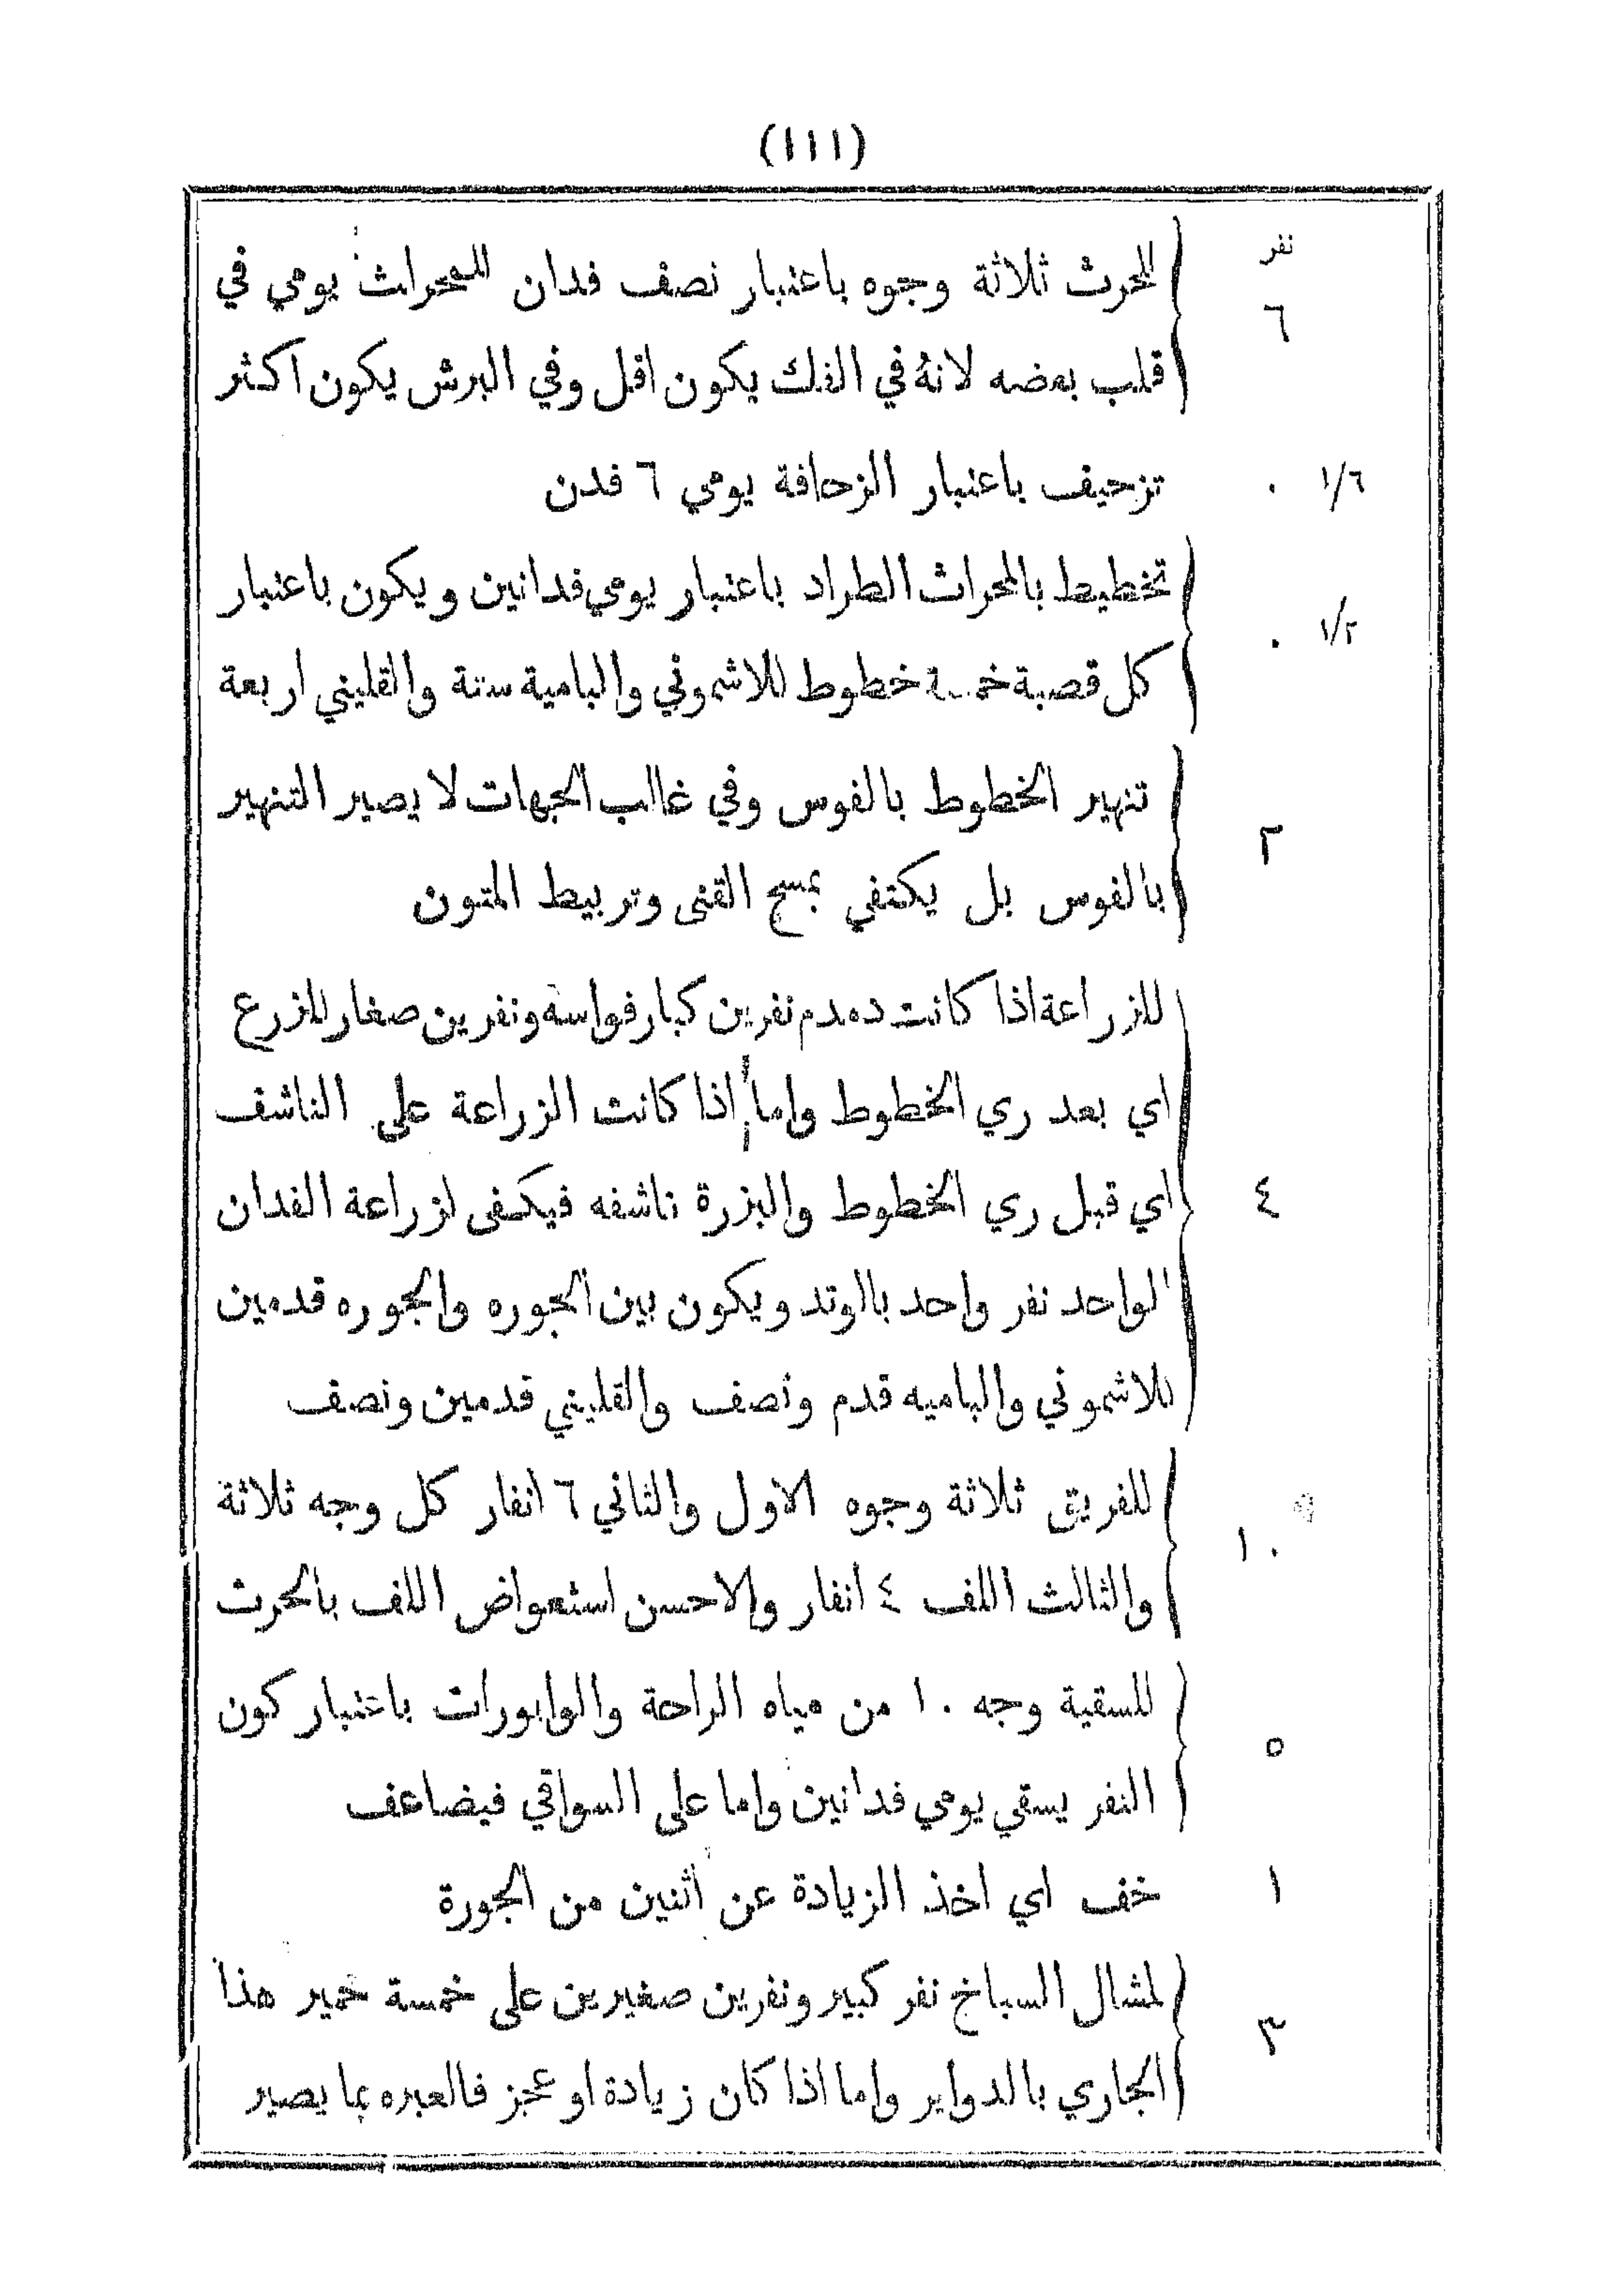 (١١١)
نفر
٦
للحرث ثلاثة وجوه باعتبار نصف فدان للمحراث يومي في
قلب بعضه لانهُ في الفك يكون اقل وفي البرش يكون اكثر
١/٦ ٠ تزحيف باعتبار الزحافة يومي ٦ فدن
١/٢ ٠
تخطيط بالمحراث الطراد باعتبار يومي فدانين ويكون باعتبار
كل قصبة خمسة خطوط للاشموني والبامية ستة والقليني اربعة
٢
تنهير الخطوط بالفوس وفي غالب الجهات لا يصير التنهير
بالفوس بل يكتفي بمسح القنى وتربيط المتون
٤
للزراعة اذا كانت دمدم نفرين كبار فواسه ونفرين صغار للزرع
اي بعد ري الخطوط واما اذا كانت الزراعة على الناشف
اي قبل ري الخطوط والبزرة ناشفه فيكفى لزراعة الفدان
الواحد نفر واحد بالوتد ويكون بين الجوره والجوره قدمين
للاشموني والباميه قدم ونصف والقليني قدمين ونصف
١٠
للفريق ثلاثة وجوه الاول والثاني ٦ انفار كل وجه ثلاثة
والثالث اللف ٤ انفار والاحسن استعواض اللف بالحرث
٥
للسقية وجه ١٠ من مياه الراحة والوابورات باعتبار كون
النفر يسقي يومي فدانين واما على السواقي فيضاعف
١ خف اي اخذ الزيادة عن اثنين من الجورة
٣
لمشال السباخ نفر كبير ونفرين صغيرين على خمسة حمير هذا
الجاري بالدواير واما اذا كان زيادة او عجز فالعبره بما يصير